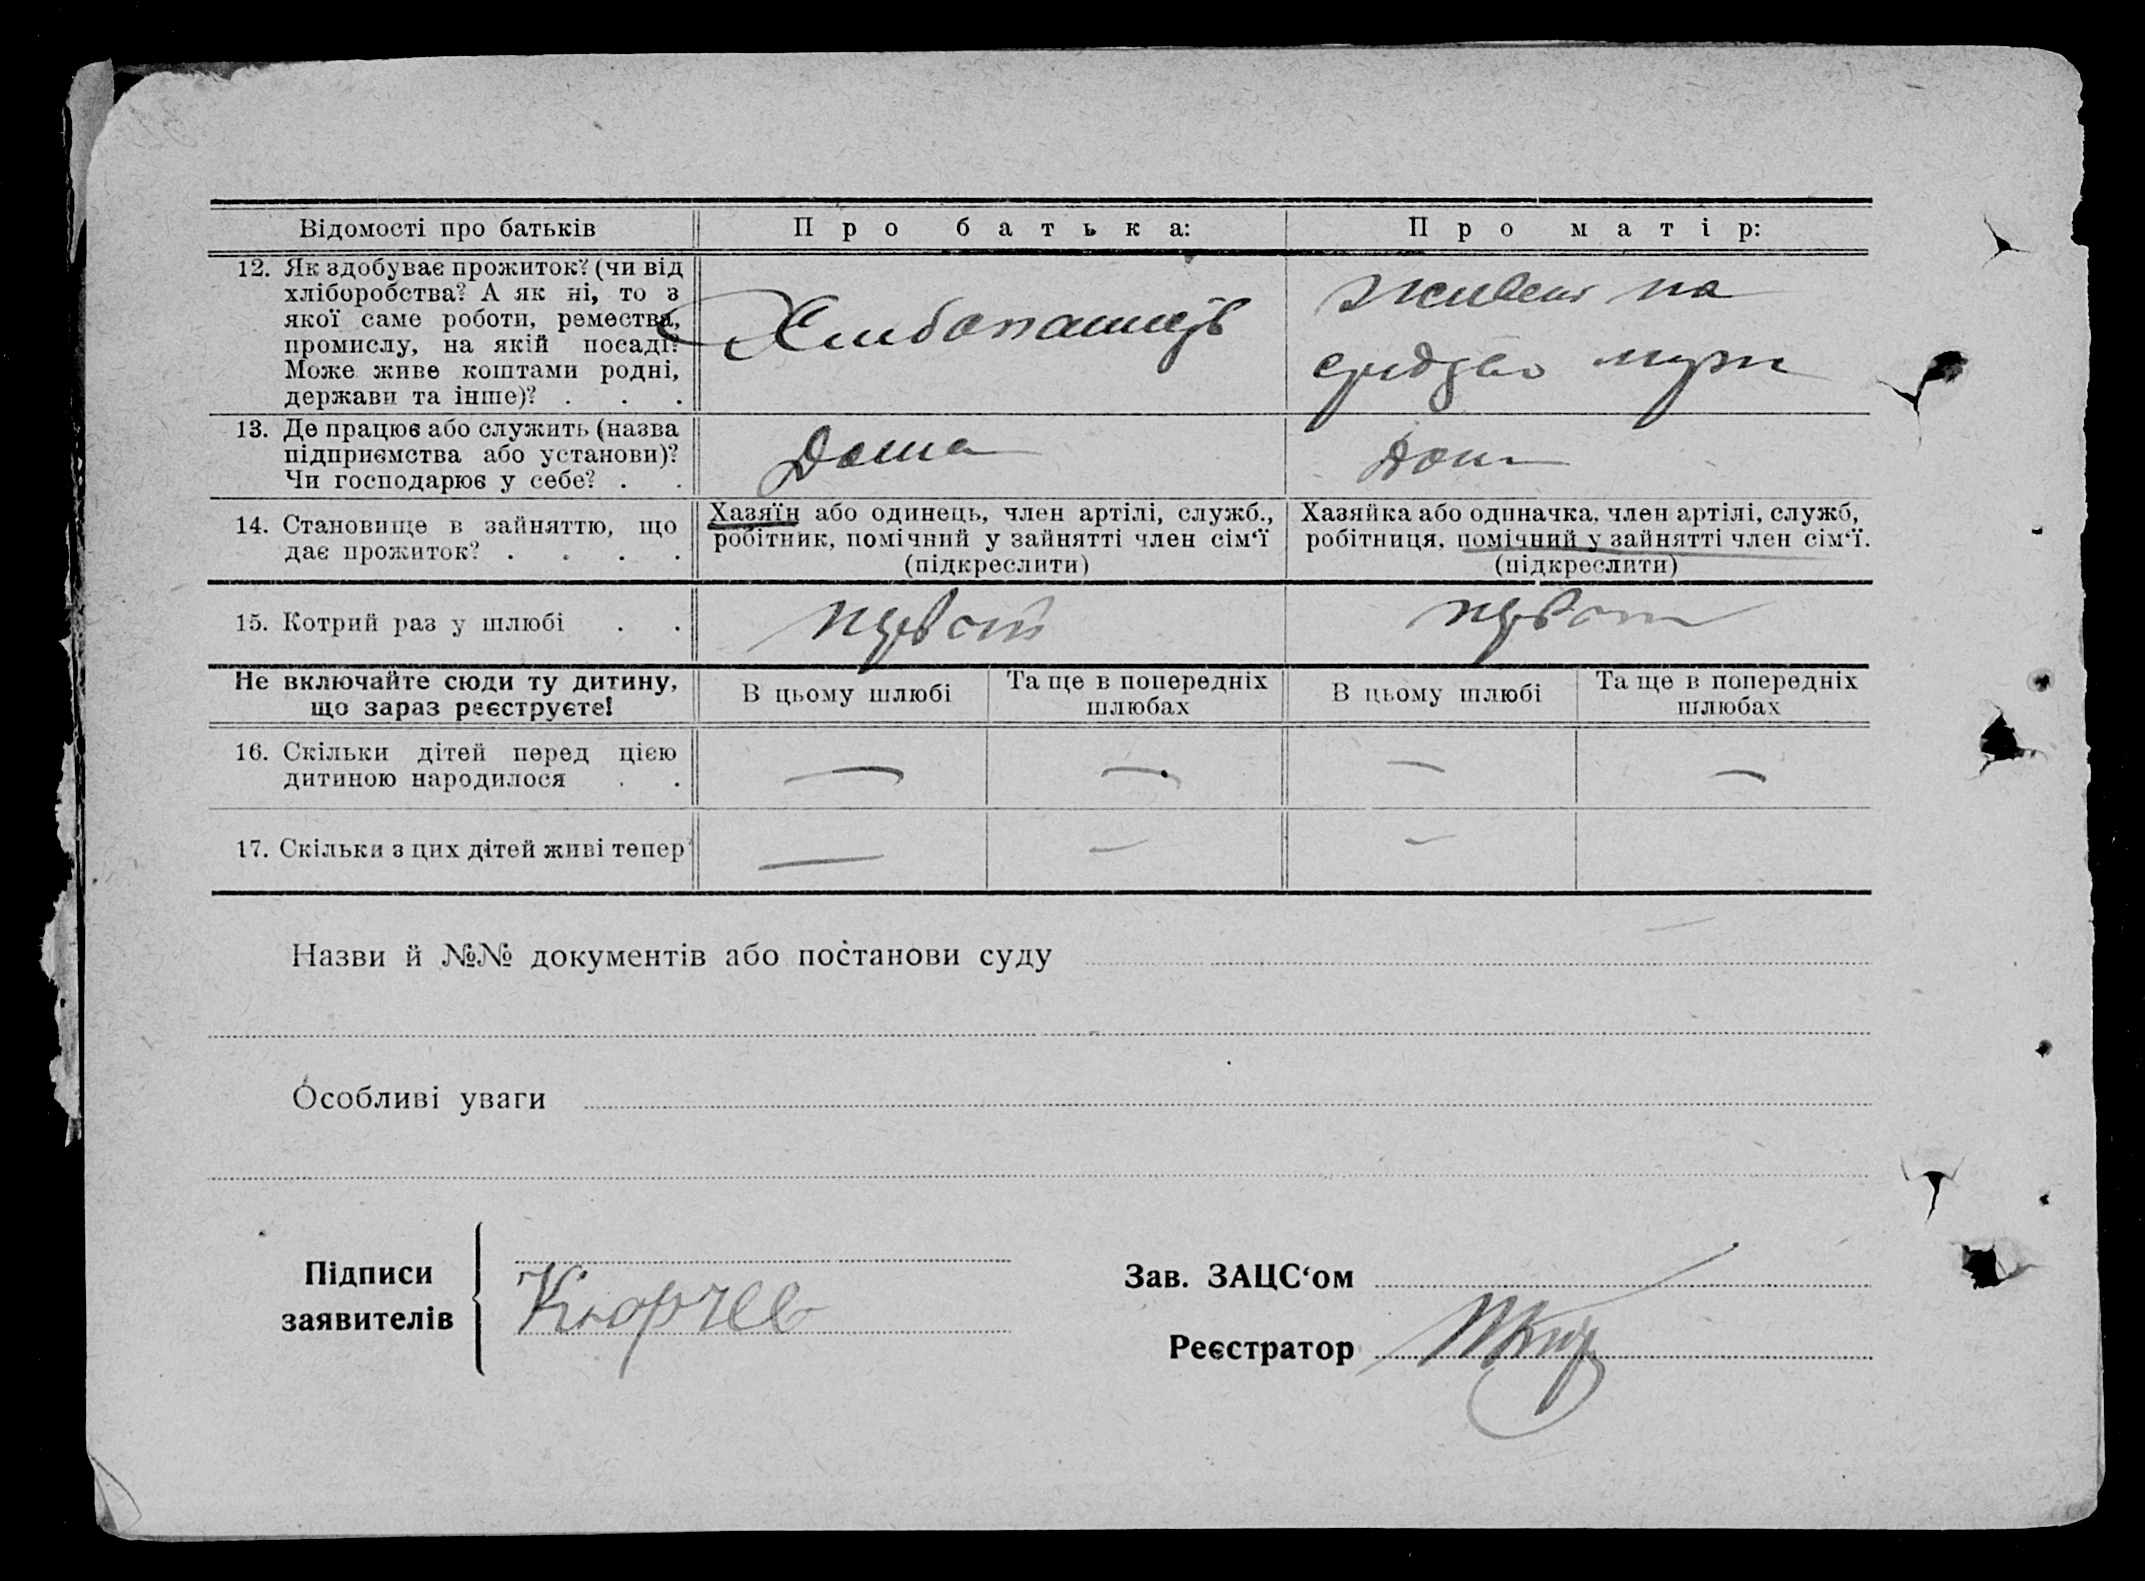 Відомості про батьків
Про батька:
Про матір:
12. Як здобуває прожиток? (чи від
хліборобства? А як ні, то з
якої саме роботи, ремества,
промислу, на якій посаді?
Може живе коштами родні,
держави та інше)? . . .
Хлибопашець
живет на
мужи
13. Де працює або служить (назва
підприємства або установи)?
Чи господарює у себе? . .
Дома
Дома
14. Становище в зайняттю, що
дає прожиток? . . . .
Хазяїн або одинець, член артілі, служб.,
робітник, помічний у зайнятті член сім‘ї
(підкреслити)
Хазяйка або одиначка, член артілі, служб,
робітниця, помічний у зайнятті член сім‘ї.
(підкреслити)
15. Котрий раз у шлюбі . .
первой
первой
Не включайте сюди ту дитину,
що зараз реєструєте!
В цьому шлюбі
Та ще в попередніх
шлюбах
В цьому шлюбі
Та ще в попередніх
шлюбах
16. Скільки дітей перед цією
дитиною народилося . .
— — — —
17. Скільки з цих дітей живі тепер
— — —
Назви й №№ документів або постанови суду
Особливі уваги
Підписи
заявителів
Кюрчев
Зав. ЗАЦС‘ом
Реєстратор